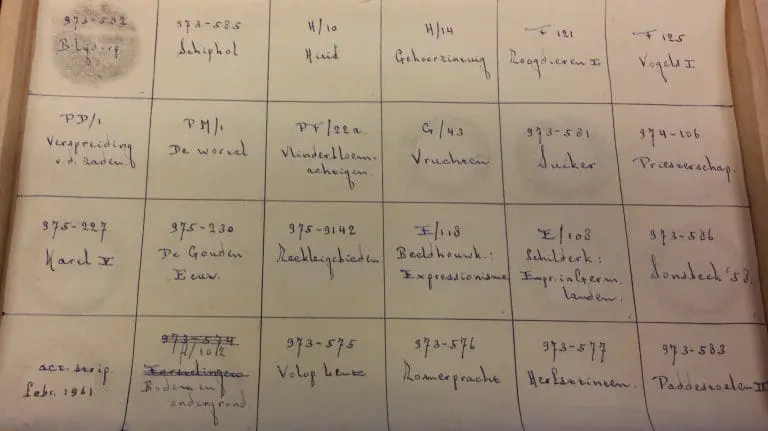 973-582
Blijdorp
973-585
Schiphol
H/10
Huid
H/14
Gehoorzintuig
F 121
Zoogdieren I
F 125
Vogels I
PD/1
Verspreiding
v.d. zaden.
PM/1
De wortel
PF/22a.
Vlinderbloem-
achtigen.
G/43
Vruchten
973-581
Suiker
974-106
Priesterschap.
975-227
Karel V
975-230
De Gouden
Eeuw.
975-9142
Zeekleigebieden
E/118
Beeldhouwk.:
Expressionisme
E/108
Schilderk:
Expr. in Germ.
landen.
973-586
Sonsbeek '58
act. strip.
febr. 1961
973-574
H/10/2
Bodem en
ondergrond.
973-575
Volop Lente
973-576
Zomerpracht
973-577
Herfsttinten.
973-583
Paddestoelen II